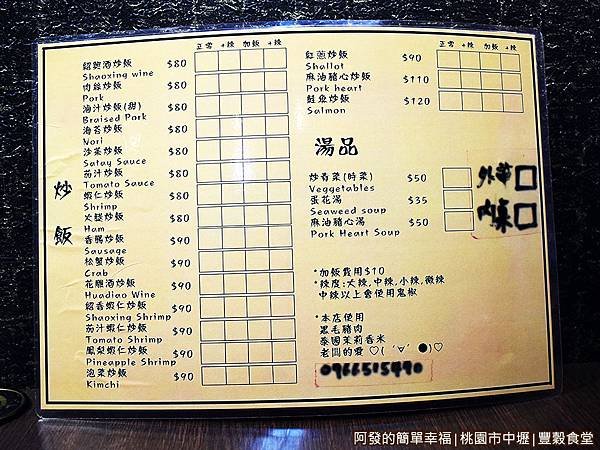 炒飯
正常 +辣 加飯 +辣
紹興酒炒飯 $80
Shaoxing wine
肉絲炒飯 $80
Pork
滷汁炒飯(甜) $80
Braised Pork
海苔炒飯 $80
Nori
沙茶炒飯 $80
Satay Sauce
茄汁炒飯 $80
Tomato Sauce
蝦仁炒飯 $80
Shrimp
火腿炒飯 $80
Ham
香腸炒飯 $90
Sausage
松蟹炒飯 $90
Crab
花雕酒炒飯 $90
Huadiao Wine
紹香蝦仁炒飯 $90
Shaoxing Shrimp
茄汁蝦仁炒飯 $90
Tomato Shrimp
鳳梨蝦仁炒飯 $90
Pineapple Shrimp
泡菜炒飯 $90
Kimchi
正常 +辣 加飯 +辣
紅蔥炒飯 $90
Shallot
麻油豬心炒飯 $110
Pork heart
鮭魚炒飯 $120
Salmon
湯品
炒青菜(時菜) $50
Veggetables
蛋花湯 $35
Seaweed soup
麻油豬心湯 $50
Pork Heart Soup
外帶□
內桌□
*加飯費用$10
*辣度:大辣,中辣,小辣,微辣
中辣以上會使用鬼椒
*本店使用
黑毛豬肉
泰國茉莉香米
老闆的愛♡( ˊ∀ˋ ●)♡
0966515490
阿發的簡單幸福|桃園市中壢|豐穀食堂